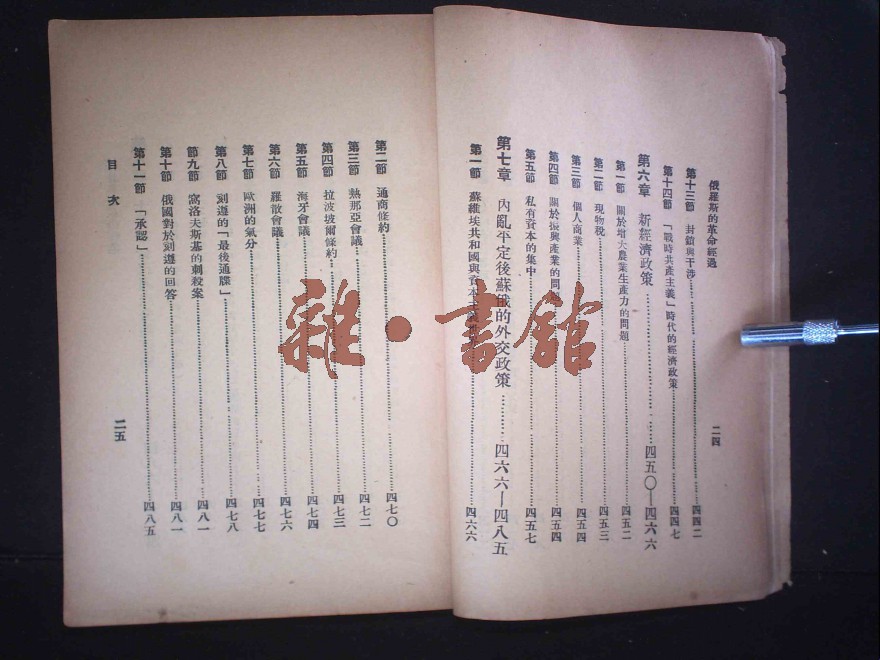 俄羅斯的革命經過
二四
第十三節 封鎖與干涉……四四二
第十四節 「戰時共產主義」時代的經濟政策……四四七
第六章 新經濟政策……四五〇—四六六
第一節 關於增大農業生產力的問題……四五二
第二節 現物稅……四五三
第三節 個人商業……四五四
第四節 關於振興產業的問題……四五四
第五節 私有資本的集中……四五七
第七章 內亂平定後蘇俄的外交政策……四六六—四八五
第一節 蘇維埃共和國與資本主……四六六
第二節 通商條約……四七〇
第三節 熱那亞會議……四七二
第四節 拉波坡爾條約……四七三
第五節 海牙會議……四七四
第六節 羅散會議……四七六
第七節 歐洲的氣分……四七七
第八節 刻遵的「最後通牒」……四七八
節九節 窩洛夫斯基的刺殺案……四八一
第十節 俄國對於刻遵的回答……四八一
第十一節 「承認」……四八五
目次
二五
雜·書館